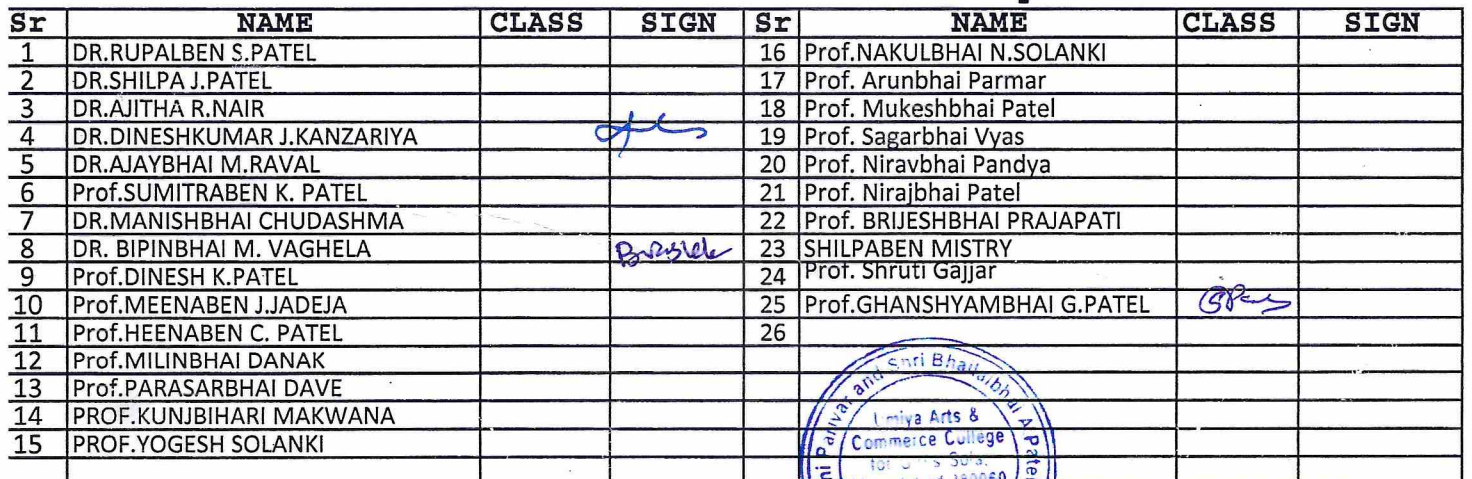 Sr NAME CLASS SIGN Sr NAME CLASS SIGN
1 DR.RUPALBEN S.PATEL 16 Prof.NAKULBHAI N.SOLANKI
2 DR.SHILPA J.PATEL 17 Prof. Arunbhai Parmar
3 DR.AJITHA R.NAIR 18 Prof. Mukeshbhai Patel
4 DR.DINESHKUMAR J.KANZARIYA 19 Prof. Sagarbhai Vyas
5 DR.AJAYBHAI M.RAVAL 20 Prof. Niravbhai Pandya
6 Prof.SUMITRABEN K. PATEL 21 Prof. Nirajbhai Patel
7 DR.MANISHBHAI CHUDASHMA 22 Prof. BRIJESHBHAI PRAJAPATI
8 DR. BIPINBHAI M. VAGHELA 23 SHILPABEN MISTRY
9 Prof.DINESH K.PATEL 24 Prof. Shruti Gajjar
10 Prof.MEENABEN J.JADEJA 25 Prof.GHANSHYAMBHAI G.PATEL
11 Prof.HEENABEN C. PATEL 26
12 Prof.MILINBHAI DANAK
13 Prof.PARASARBHAI DAVE
14 PROF.KUNJBIHARI MAKWANA
15 PROF.YOGESH SOLANKI
and Shri Bhailalbhai A Patel
Umiya Arts &
Commerce College